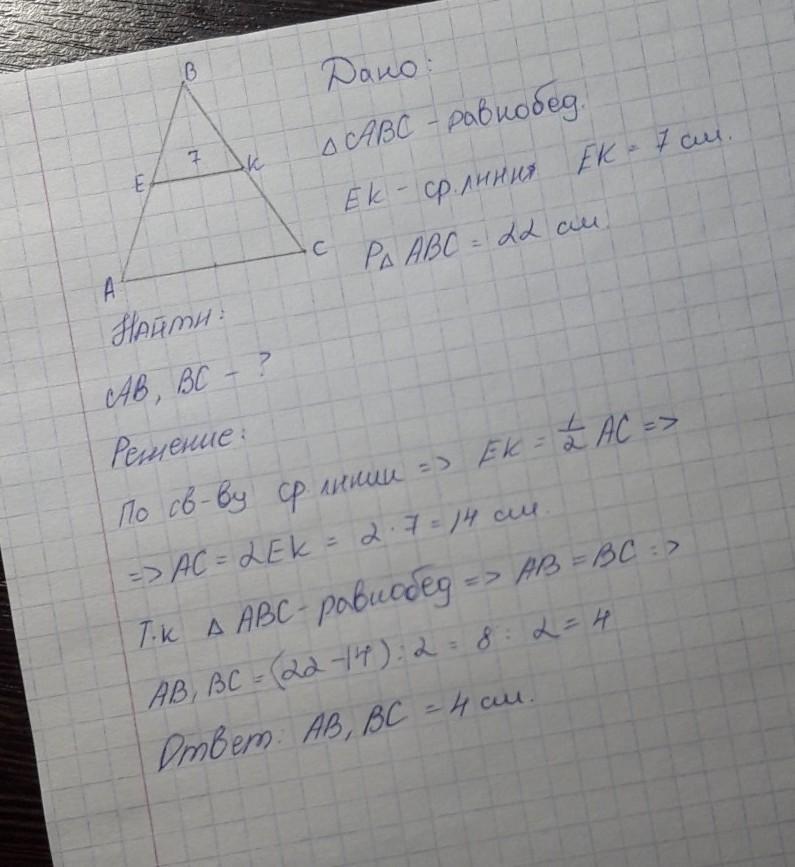 B
Дано:
7
E
K
△ ABC - равнобед.
EK - ср. линия EK = 7 см.
C
P△ ABC = 22 см
A
Найти:
AB, BC - ?
Решение:
По св-ву ср. линии => EK = 1/2 AC =>
=> AC = 2EK = 2 · 7 = 14 см.
Т.к △ ABC - равнобед => AB = BC =>
AB, BC = (22 - 14) : 2 = 8 : 2 = 4
Ответ: AB, BC = 4 см.